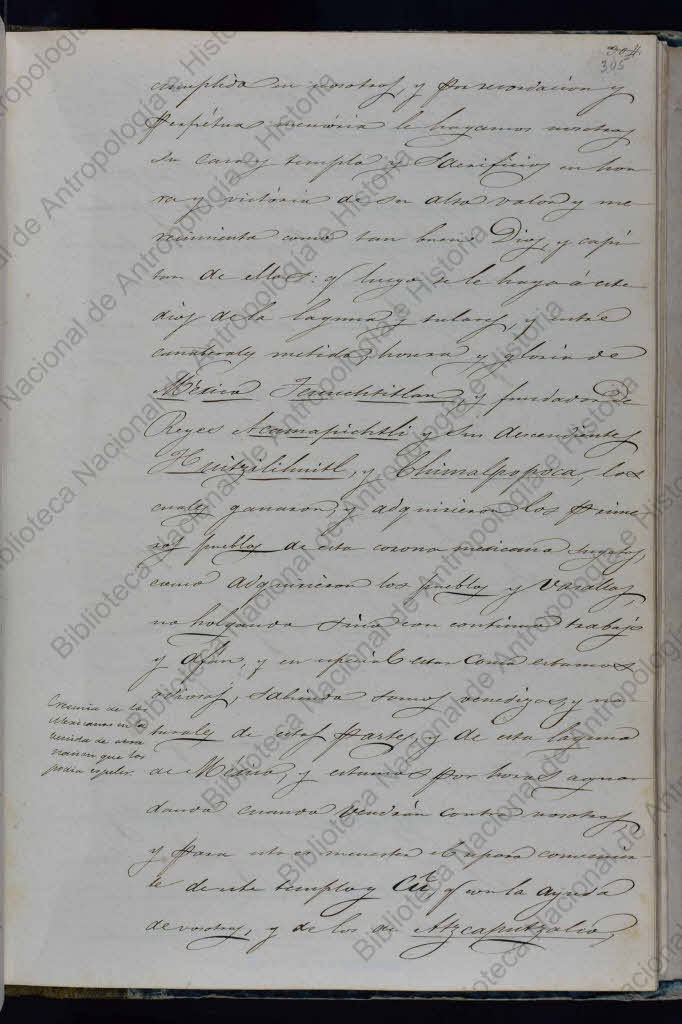 304.
305
cumplida en nosotros, y por recordacion y
perpétua memória le hagamos nosotros
su casa y templo y Sacrificios en hon-
ra y victória de su alto valor y me-
recimiento como tan buen Dios, y capi-
tan de ellos: y luego se le haga á este
dios de la laguna y tulares, y entre
cañaberales metido, honra y gloria de
México Tenuchtitlan, y fundador de
Reyes Acamapichtli y sus descendientes
Huitzilihuitl, y Chimalpopoca, los
cuales ganaron y adquirieron los prime-
ros pueblos de esta corona mexicana
como adquirieron los pueblos y Vasallos,
no holgando sino con continuo trabajo
y afan, y en especial estar como estamos
odiosos, sabiendo somos venedizos, y na-
turales de estas partes y de esta laguna
de México, y estamos por horas aguar-
dando cuando vendrán contra nosotros
y para esto es menester el reparo convenien-
te de este templo y Cú, y con la ayuda
de vosotros, y de los de Atzcaputzalco,
Creencia de los
Mexicanos en la
venida de otra
nacion que los
podia espeler.
Biblioteca Nacional de Antropología e Historia